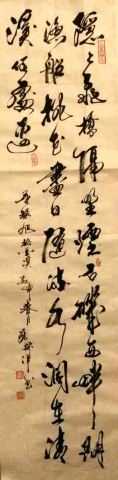 隱々飛橋隔野煙石磯西畔問
漁船桃花盡日隨流水洞在清
溪何處邊
張旭桃花溪 春月 書